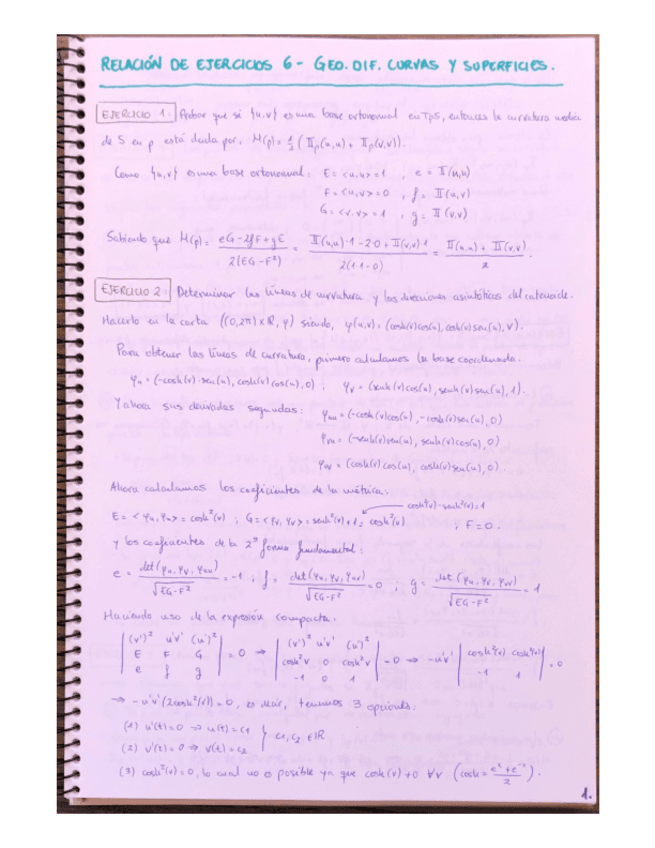 RELACIÓN DE EJERCICIOS 6 - GEO. DIF. CURVAS Y SUPERFICIES.
EJERCICIO 1: Probar que si {u,v} es una base ortonormal en TpS, entonces la curvatura media
de S en p está dada por: H(p) = 1/2 (IIp(u,u) + IIp(v,v)).
Como {u,v} es una base ortonormal: E = <u,u> = 1 , e = II(u,u)
F = <u,v> = 0 , f = II(u,v)
G = <v,v> = 1 , g = II(v,v)
Sabiendo que H(p) = (eG - 2fF + gE) / (2(EG - F²)) = (II(u,u)·1 - 2·0 + II(v,v)·1) / (2(1·1 - 0)) = (II(u,u) + II(v,v)) / 2 .
EJERCICIO 2: Determinar las líneas de curvatura y las direcciones asintóticas del catenoide.
Hacerlo en la carta ((0,2π) x ℝ, φ) siendo, φ(u,v) = (cosh(v)cos(u), cosh(v)sen(u), v).
Para obtener las líneas de curvatura, primero calculamos la base coordenada.
φu = (-cosh(v)·sen(u), cosh(v)cos(u), 0) ; φv = (senh(v)cos(u), senh(v)sen(u), 1).
Y ahora sus derivadas segundas: φuu = (-cosh(v)cos(u), -cosh(v)sen(u), 0)
φvu = (-senh(v)sen(u), senh(v)cos(u), 0)
φvv = (cosh(v)cos(u), cosh(v)sen(u), 0).
Ahora calculamos los coeficientes de la métrica: cosh²(v) - senh²(v) = 1
E = <φu, φu> = cosh²(v) ; G = <φv, φv> = senh²(v) + 1 = cosh²(v) ; F = 0.
y los coeficientes de la 2ª forma fundamental:
e = det(φu, φv, φuu) / √(EG - F²) = -1 ; f = det(φu, φv, φuv) / √(EG - F²) = 0 ; g = det(φu, φv, φvv) / √(EG - F²) = 1
Haciendo uso de la expresión compacta:
| (v')² u'v' (u')² | | (v')² u'v' (u')² |
| E F G | = 0 ⇒ | cosh²v 0 cosh²v | = 0 ⇒ -u'v' | cosh²(v) cosh²(v) | = 0
| e f g | | -1 0 1 | | -1 1 |
⇒ -u'v'(2cosh²(v)) = 0, es decir, tenemos 3 opciones:
(1) u'(t) = 0 ⇒ u(t) = c1 } c1, c2 ∈ ℝ
(2) v'(t) = 0 ⇒ v(t) = c2
(3) cosh²(v) = 0, lo cual no es posible ya que cosh(v) ≠ 0 ∀v (cosh = (e^x + e^-x) / 2).
1.